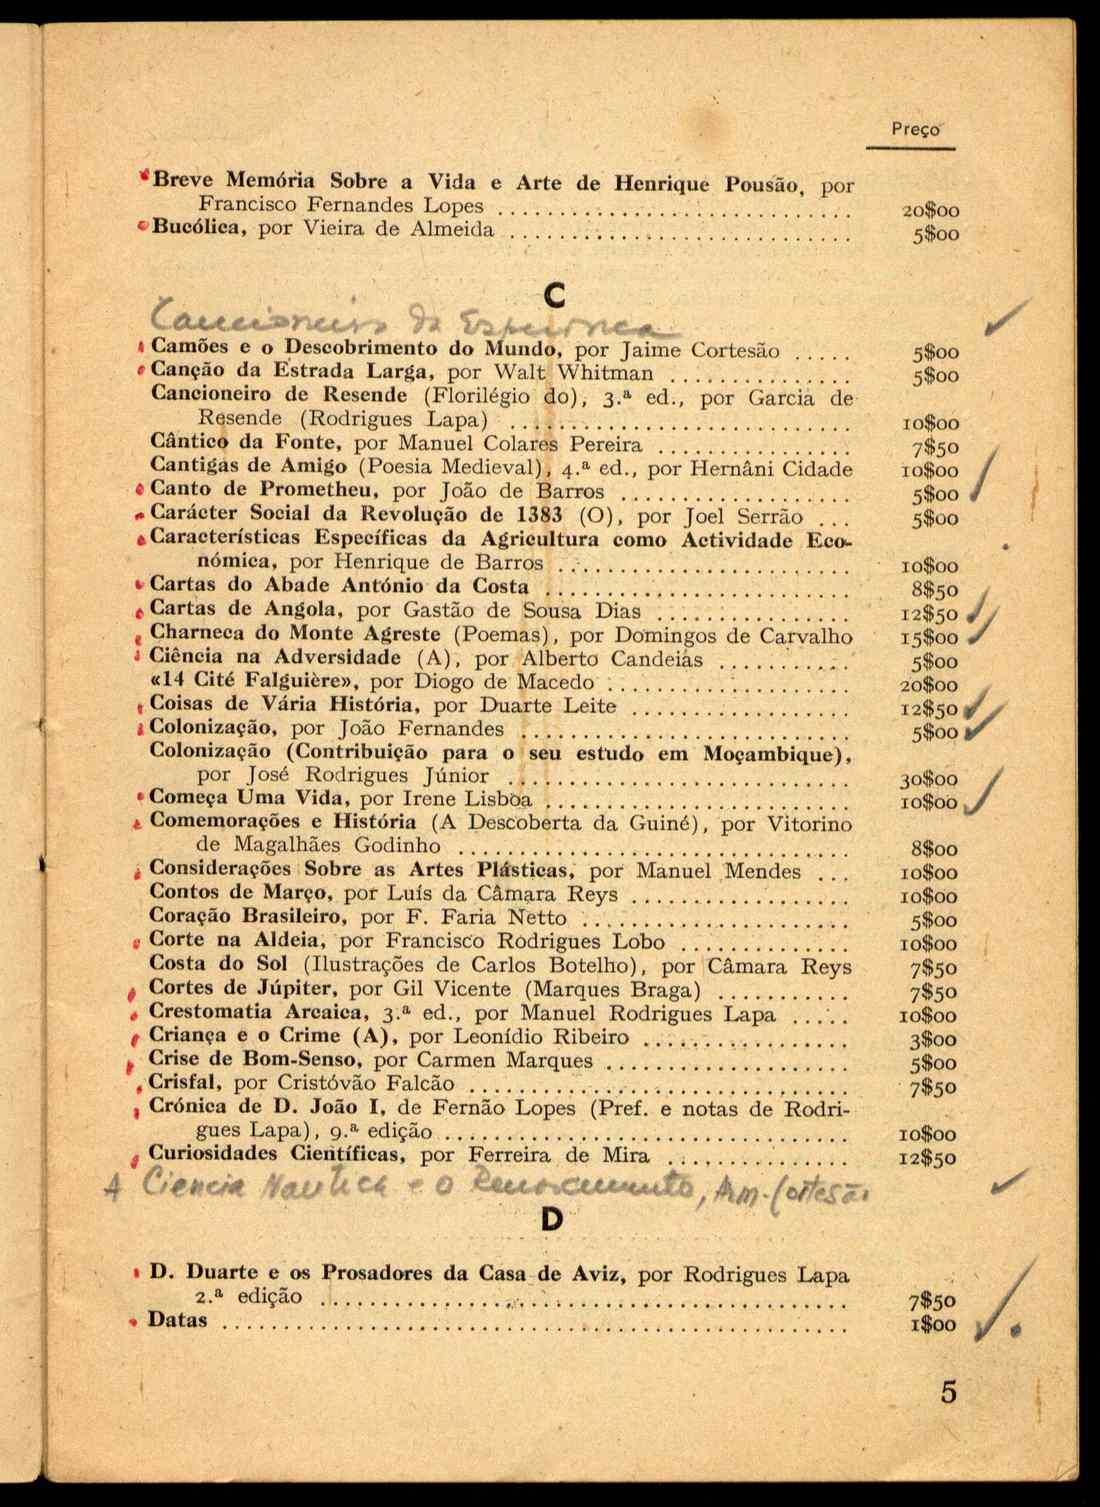 Preço
Breve Memória Sobre a Vida e Arte de Henrique Pousão, por
Francisco Fernandes Lopes ............................ 20$00
Bucólica, por Vieira de Almeida ........................... 5$00
C
Cancioneiro da Esperança
Camões e o Descobrimento do Mundo, por Jaime Cortesão ..... 5$00
Canção da Estrada Larga, por Walt Whitman .............. 5$00
Cancioneiro de Resende (Florilégio do), 3.ª ed., por Garcia de
Resende (Rodrigues Lapa) ........................... 10$00
Cântico da Fonte, por Manuel Colares Pereira ............... 7$50
Cantigas de Amigo (Poesia Medieval), 4.ª ed., por Hernâni Cidade 10$00
Canto de Prometheu, por João de Barros .................. 5$00
Carácter Social da Revolução de 1383 (O), por Joel Serrão ... 5$00
Características Específicas da Agricultura como Actividade Eco-
nómica, por Henrique de Barros ....................... 10$00
Cartas do Abade António da Costa ........................ 8$50
Cartas de Angola, por Gastão de Sousa Dias ............... 12$50
Charneca do Monte Agreste (Poemas), por Domingos de Carvalho 15$00
Ciência na Adversidade (A), por Alberto Candeias .......... 5$00
«14 Cité Falguière», por Diogo de Macedo ................... 20$00
Coisas de Vária História, por Duarte Leite ................. 12$50
Colonização, por João Fernandes .......................... 5$00
Colonização (Contribuição para o seu estudo em Moçambique),
por José Rodrigues Júnior ........................... 30$00
Começa Uma Vida, por Irene Lisboa ........................ 10$00
Comemorações e História (A Descoberta da Guiné), por Vitorino
de Magalhães Godinho ............................... 8$00
Considerações Sobre as Artes Plásticas, por Manuel Mendes ... 10$00
Contos de Março, por Luís da Câmara Reys ................. 10$00
Coração Brasileiro, por F. Faria Netto ..................... 5$00
Corte na Aldeia, por Francisco Rodrigues Lobo ............. 10$00
Costa do Sol (Ilustrações de Carlos Botelho), por Câmara Reys 7$50
Cortes de Júpiter, por Gil Vicente (Marques Braga) .......... 7$50
Crestomatia Arcaica, 3.ª ed., por Manuel Rodrigues Lapa ..... 10$00
Criança e o Crime (A), por Leonídio Ribeiro ................ 3$00
Crise de Bom-Senso, por Carmen Marques ................... 5$00
Crisfal, por Cristóvão Falcão .............................. 7$50
Crónica de D. João I, de Fernão Lopes (Pref. e notas de Rodri-
gues Lapa), 9.ª edição ................................ 10$00
Curiosidades Científicas, por Ferreira de Mira .............. 12$50
A Ciencia Nautica e o Renascimento, Arm. Cortesão
D
D. Duarte e os Prosadores da Casa de Aviz, por Rodrigues Lapa
2.ª edição .......................................... 7$50
Datas .................................................. 1$00
5